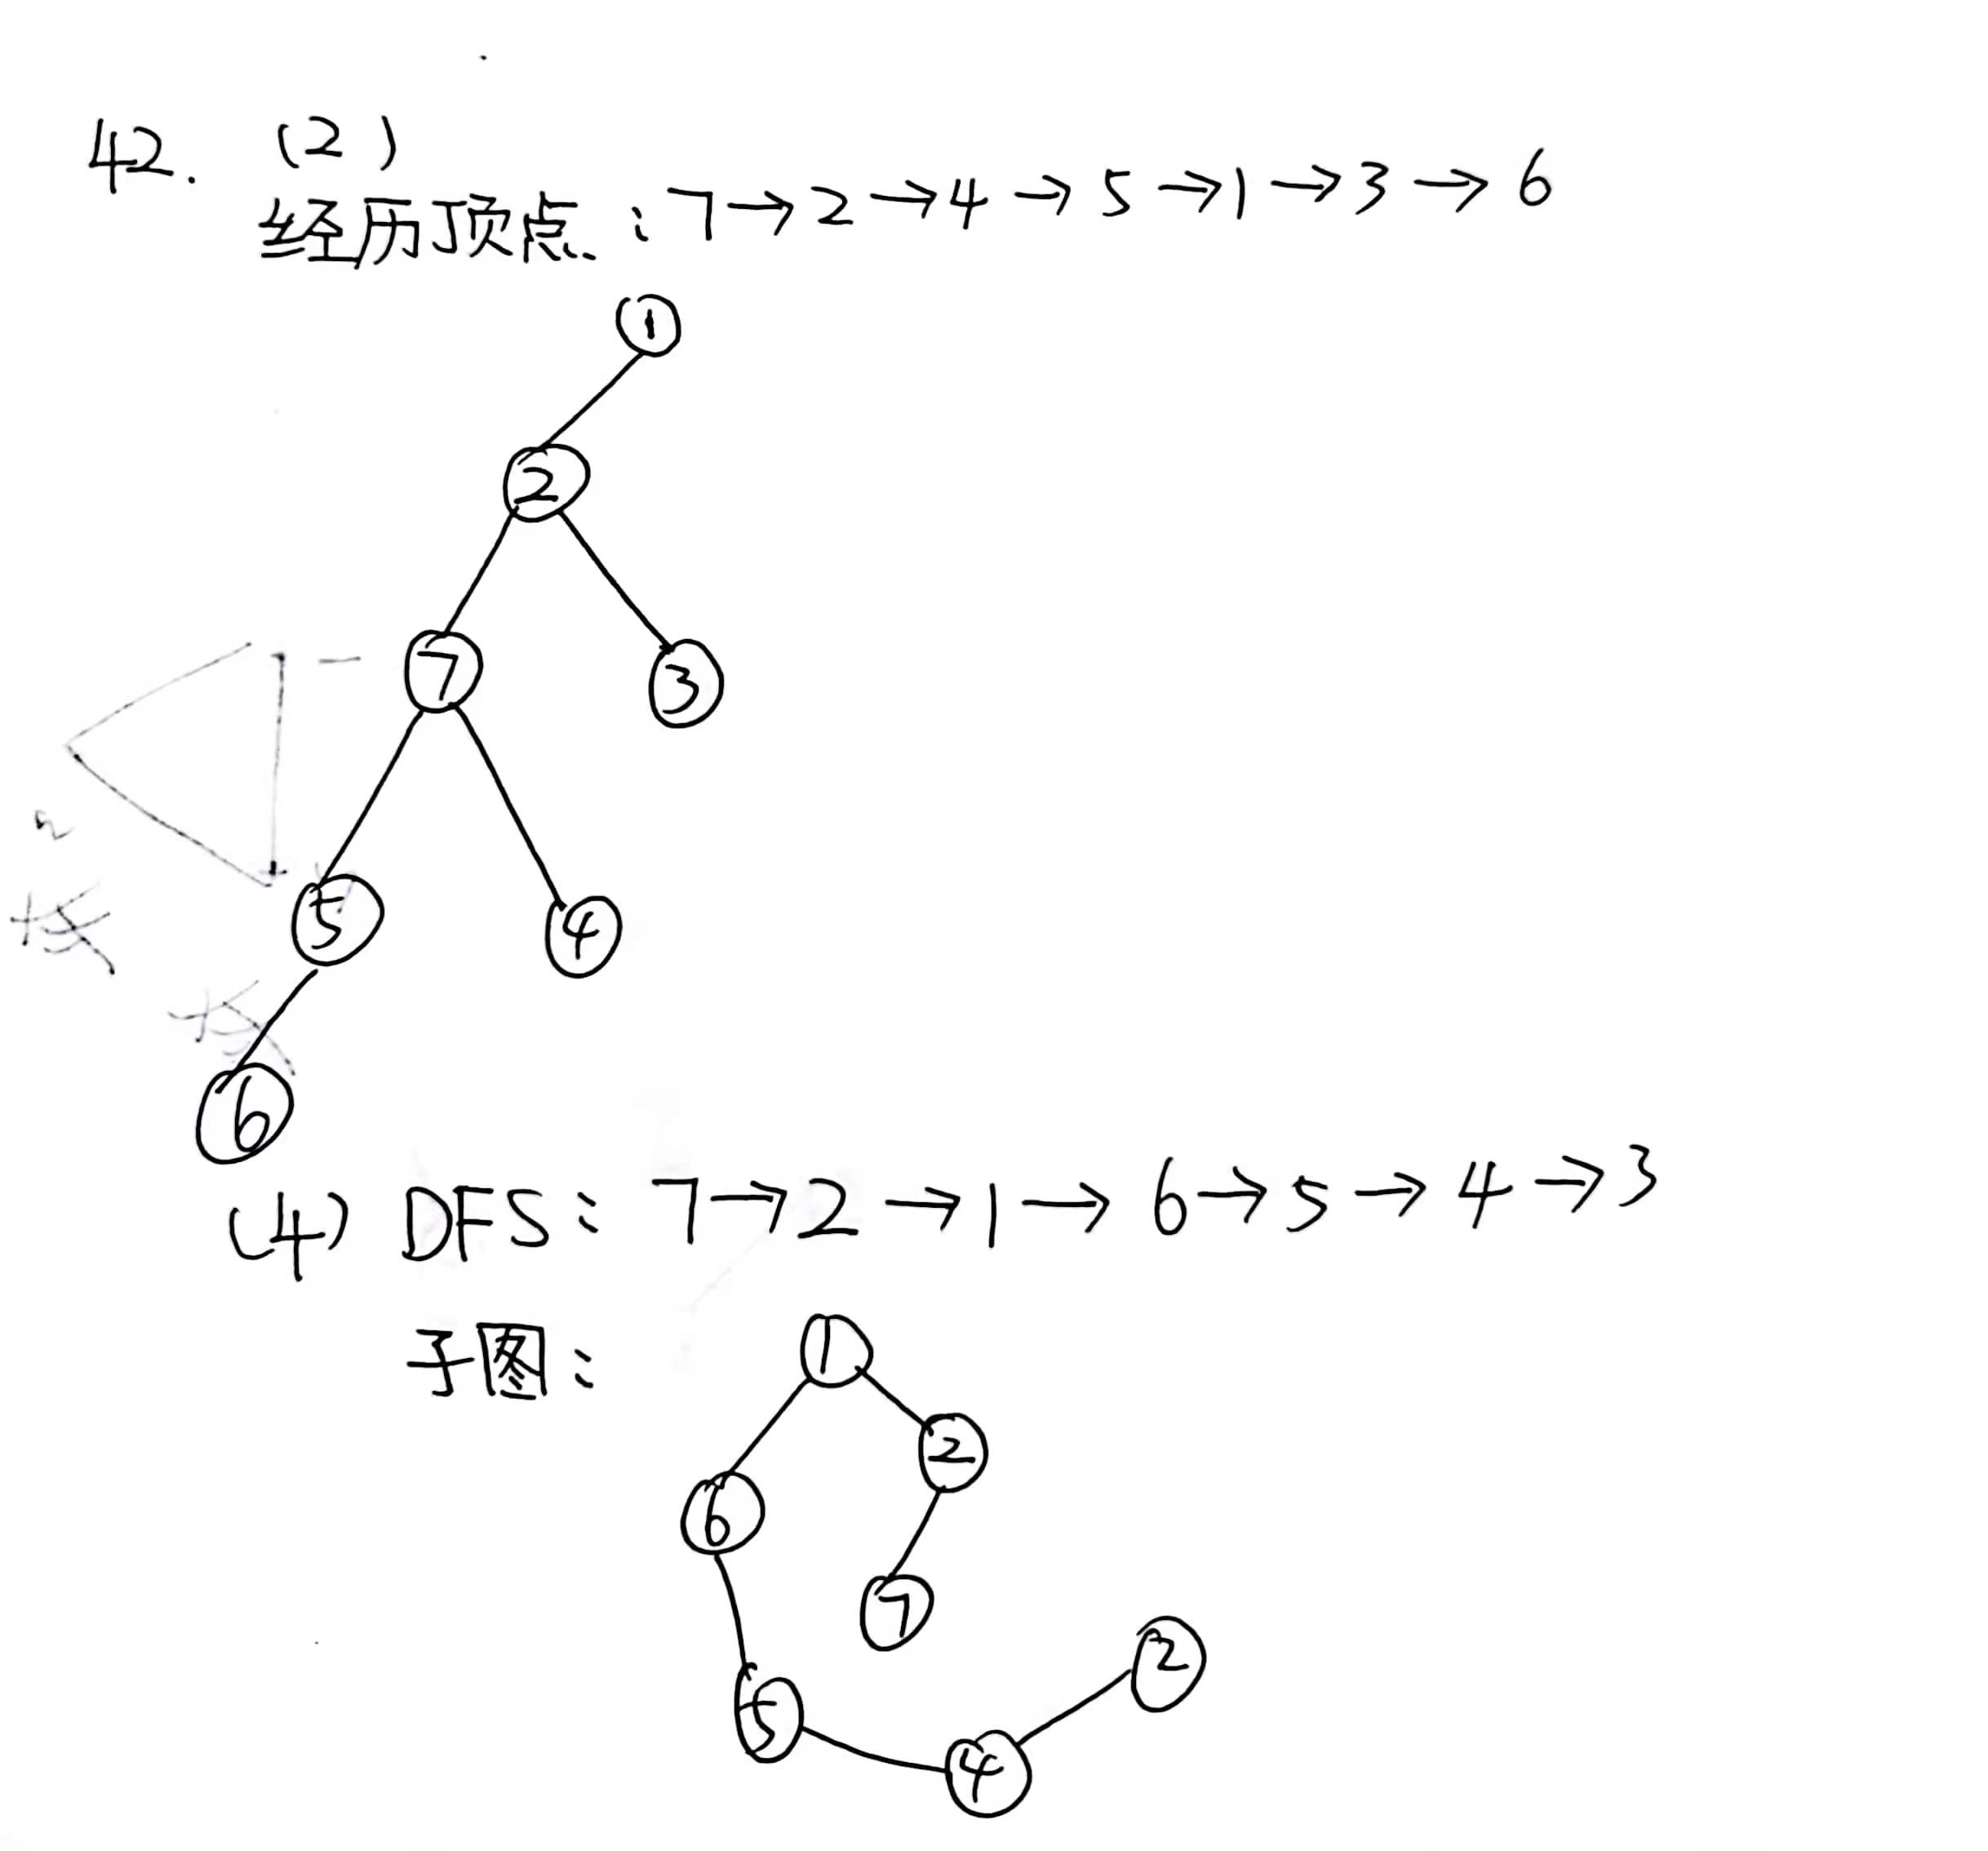 42. (2)
经历顶点: 7→2→4→5→1→3→6
1
2
7 3
5 4
6
(4) DFS: 7→2→1→6→5→4→3
子图:
1
2
6
7
2
5
4